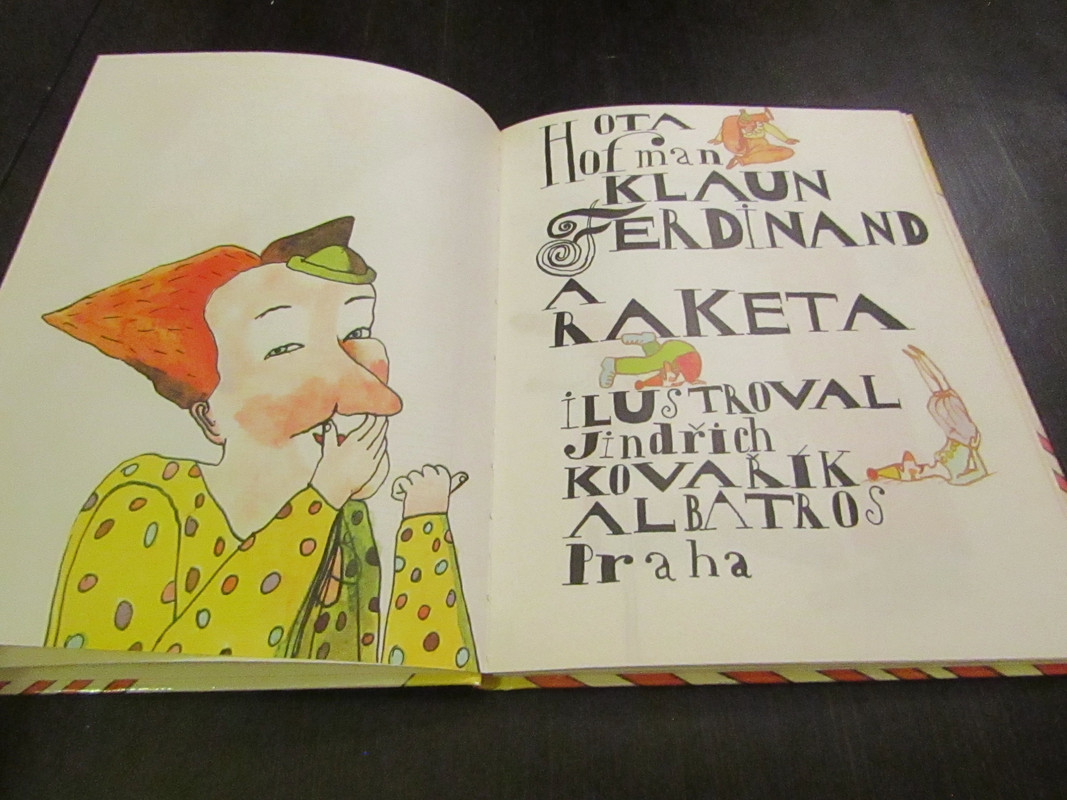 OTA
Hofman
KLAUN
FERDINAND
A
RAKETA
iLUSTROVAL
Jindřich
KOVAŘÍK
ALBATROS
Praha